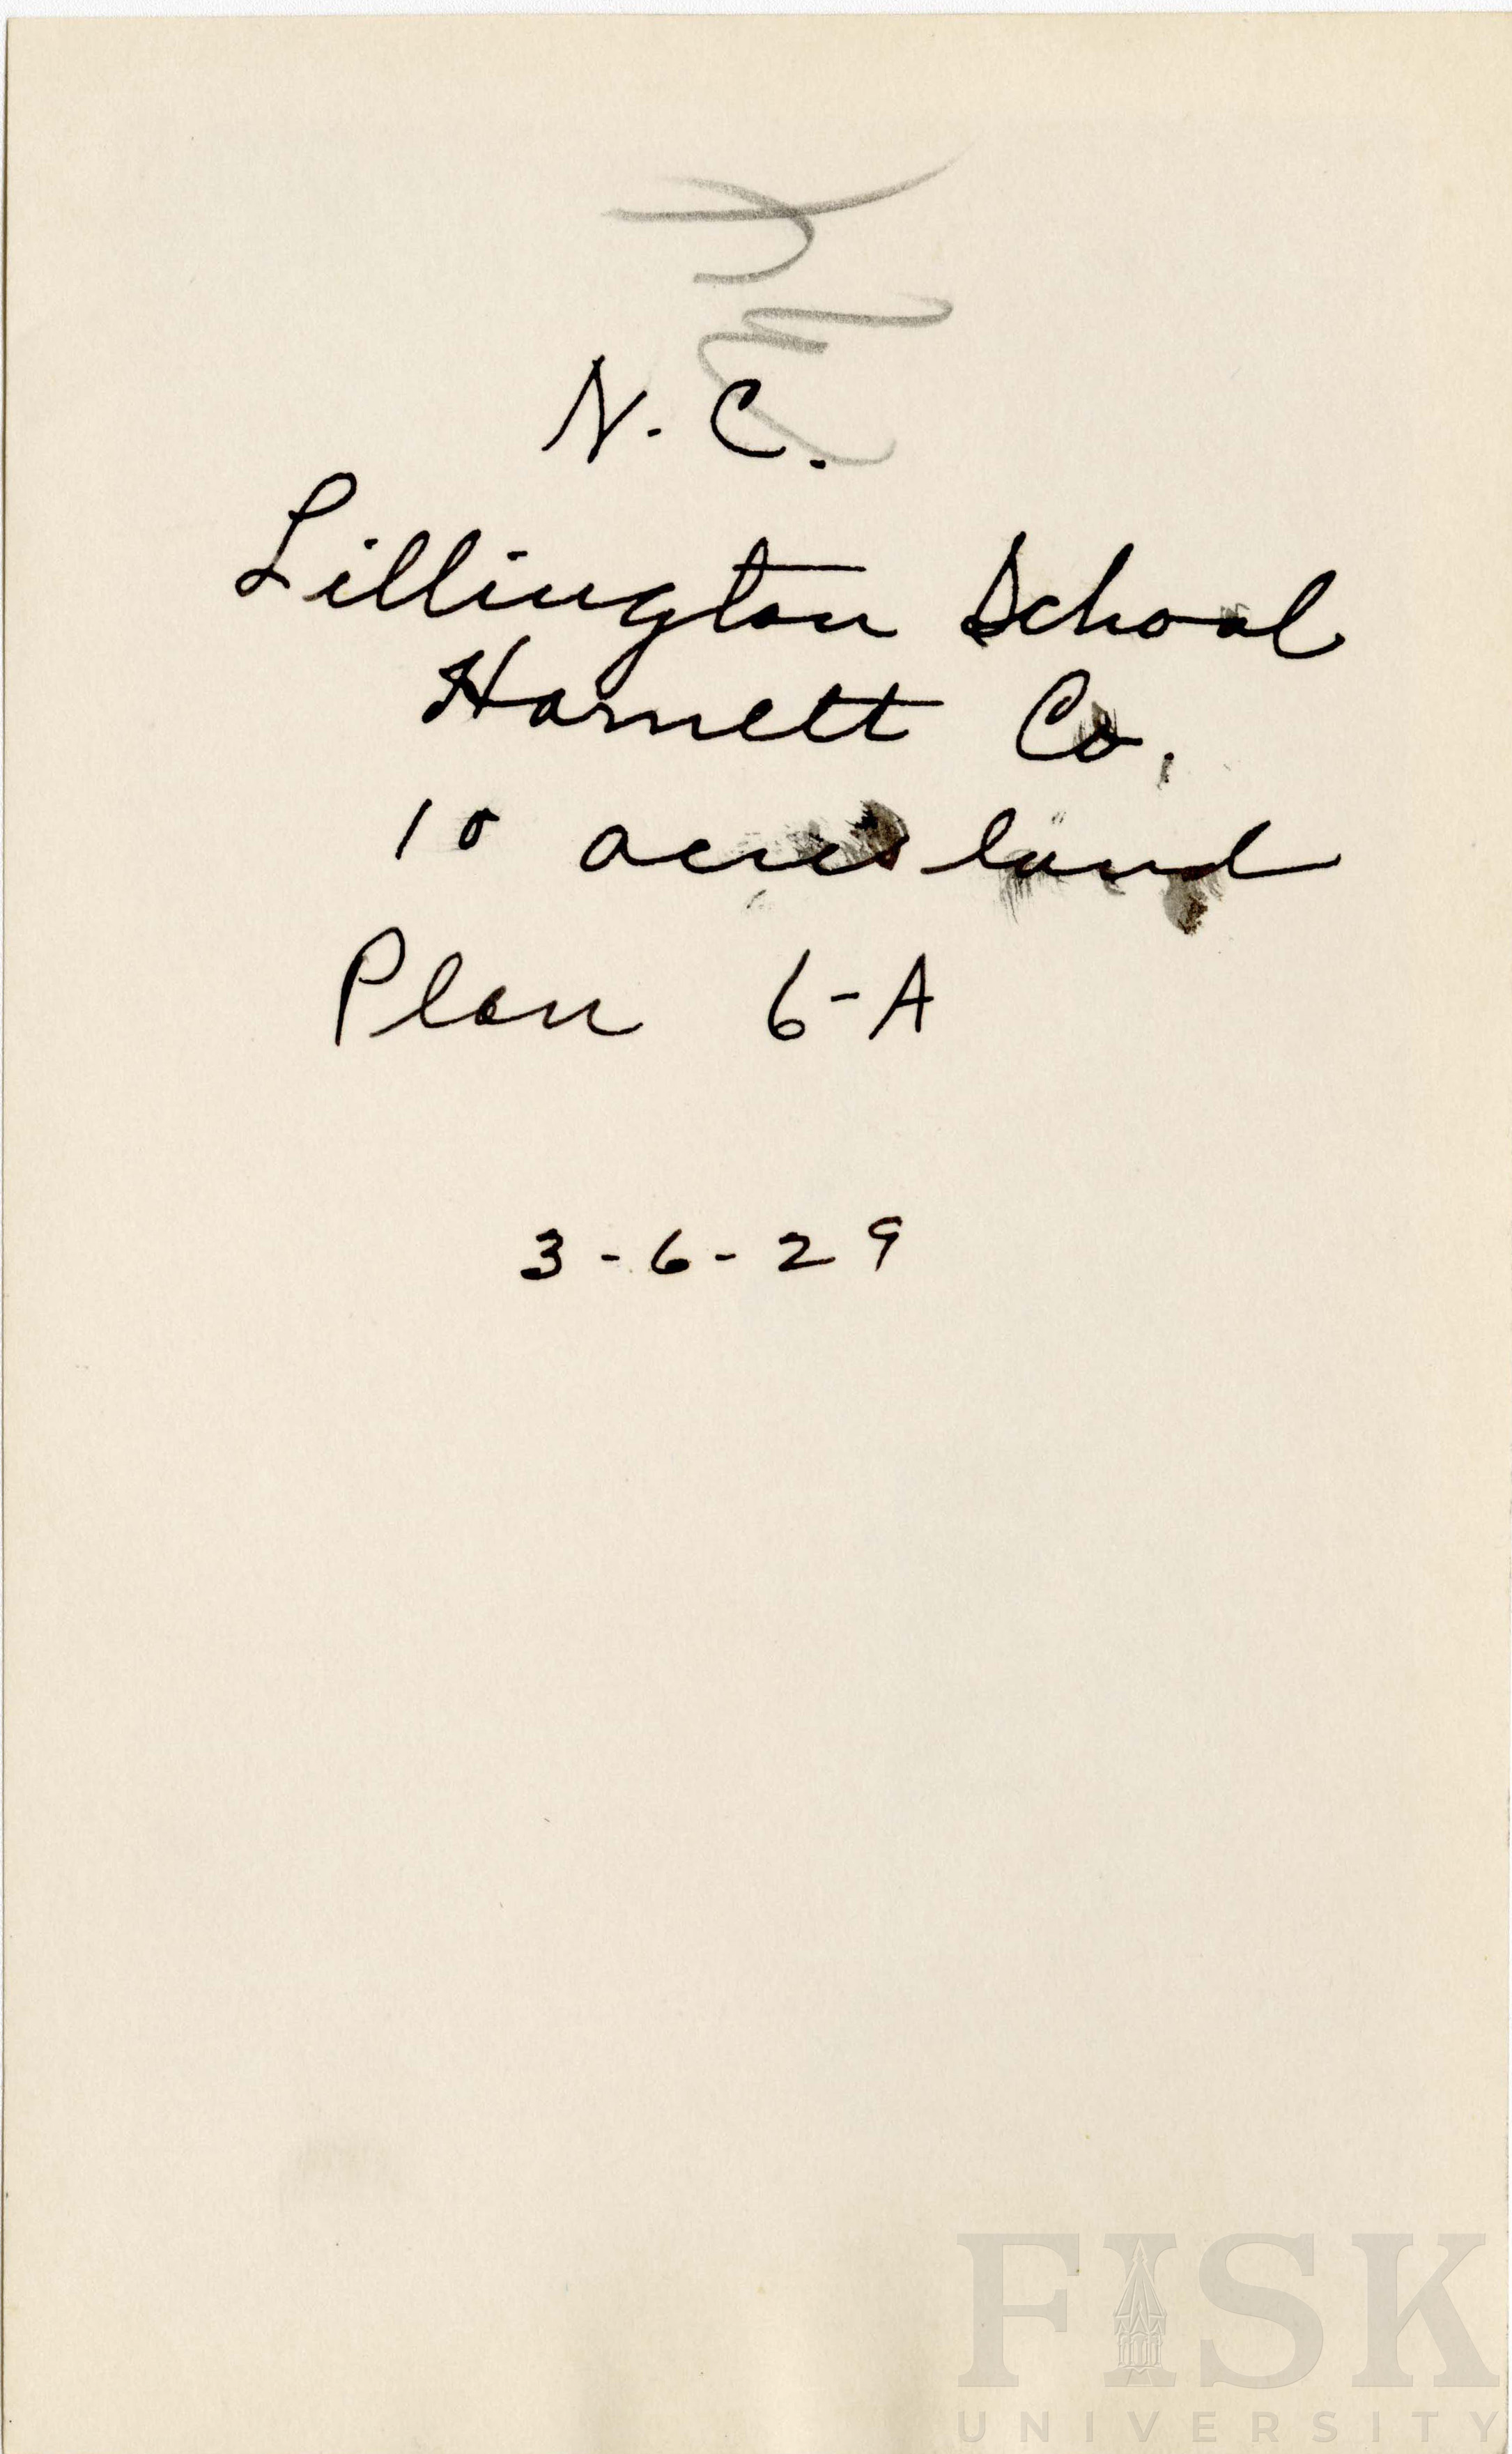 N. C.
Lillington School
Harnett Co.
10 acres land
Plan 6-A
3-6-29
FISK
UNIVERSITY